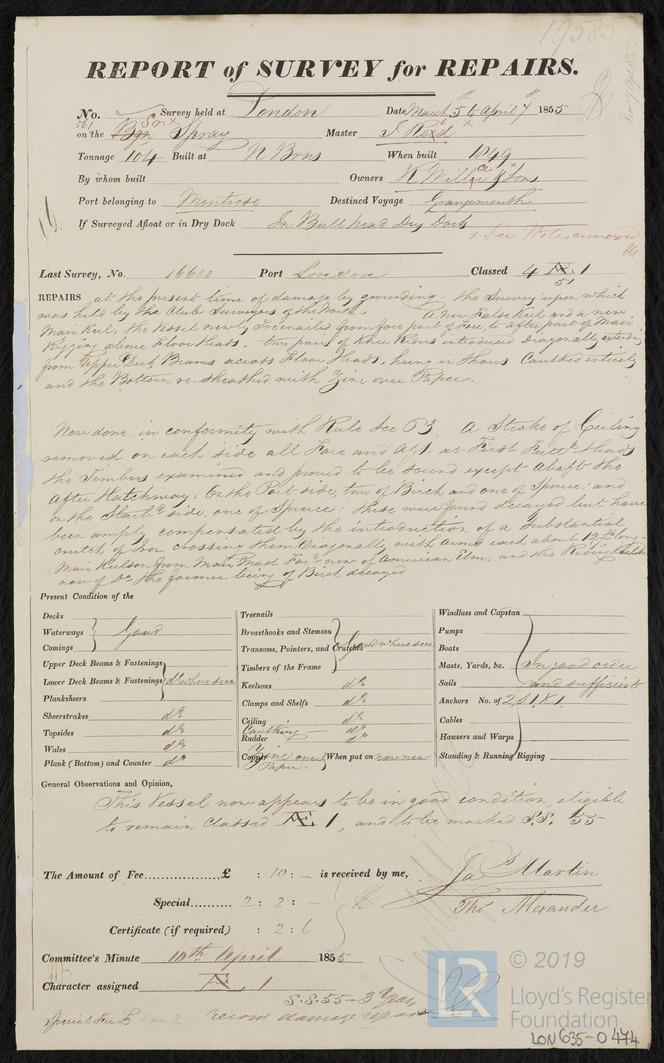 19585
REPORT of SURVEY for REPAIRS.
No. 561 Survey held at London Date March 5th to April 7th 1855
on the Bgn Snr Spray Master J. Reid
Tonnage 104 Built at N Brns When built 1849
By whom built Owners & Sons
Port belonging to Montrose Destined Voyage Grangemouth
If Surveyed Afloat or in Dry Dock In Bull head Dry Dock
+ See Note annexed
Last Survey, No. 16633 Port London Classed 4 Æ 1
51
REPAIRS at the present time of damage by grounding, the Survey upon which
was held by the Club Surveyors of the North. A new False Keel and a new
Main Keel, the Vessel newly Treenailed from fore part of Fore, to after part of Main
Rigging above Floor Heads. two pairs of Knee Riders introduced Diagonally
from Upper Deck Beams across Floor Heads, Caulked entirely
and the Bottom re-sheathed with Zinc over Paper.
Now done in conformity with Rule Sec 63, A Strake of Ceiling
removed on each side all Fore and Aft at First Futtk Heads
the Timbers examined and proved to be sound except abaft the
After Hatchway: On the Port side, two of Birch and one of Spruce: and
on the Starbd side, one of Spruce: these were found decayed but have
been amply compensated by the introduction of a Substantial
crutch of Iron crossing them Diagonally with arms each about 12 ft long
Main Keelson from Main Mast Ford new of American Elm, and the Riding Keelson
new of Do the former being of Birch decayed
Present Condition of the
Decks
Waterways Good
Comings
Upper Deck Beams & Fastenings
Lower Deck Beams & Fastenings do where seen
Planksheers
Sheerstrakes do
Topsides do
Wales do
Plank (Bottom) and Counter do
Treenails
Breasthooks and Stemson
Transoms, Pointers, and Crutches Good where seen
Timbers of the Frame
Keelsons do
Clamps and Shelfs do
Ceiling do
Caulking
Rudder do
Copper Zinc over Paper When put on now new
Windlass and Capstan
Pumps
Boats
Masts, Yards, &c. In good order
Sails and sufficient
Anchors No. of 2, S1, K1
Cables
Hausers and Warps
Standing & Running Rigging
General Observations and Opinion,
This Vessel now appears to be in good condition, eligible
to remain classed Æ 1, and to be marked S.S. '55
The Amount of Fee................£ : 10 : — is received by me,
Jas Martin
Special......... 2 : 2 : —
Thos Alexander
Certificate (if required) : 2 : 6
Committee's Minute 10th April 1855
Character assigned Æ 1
S.S. 55 - 3 Year
Special Fee £ record damage repairs
© 2019
LR
Lloyd's Register
Foundation
LON635-0474